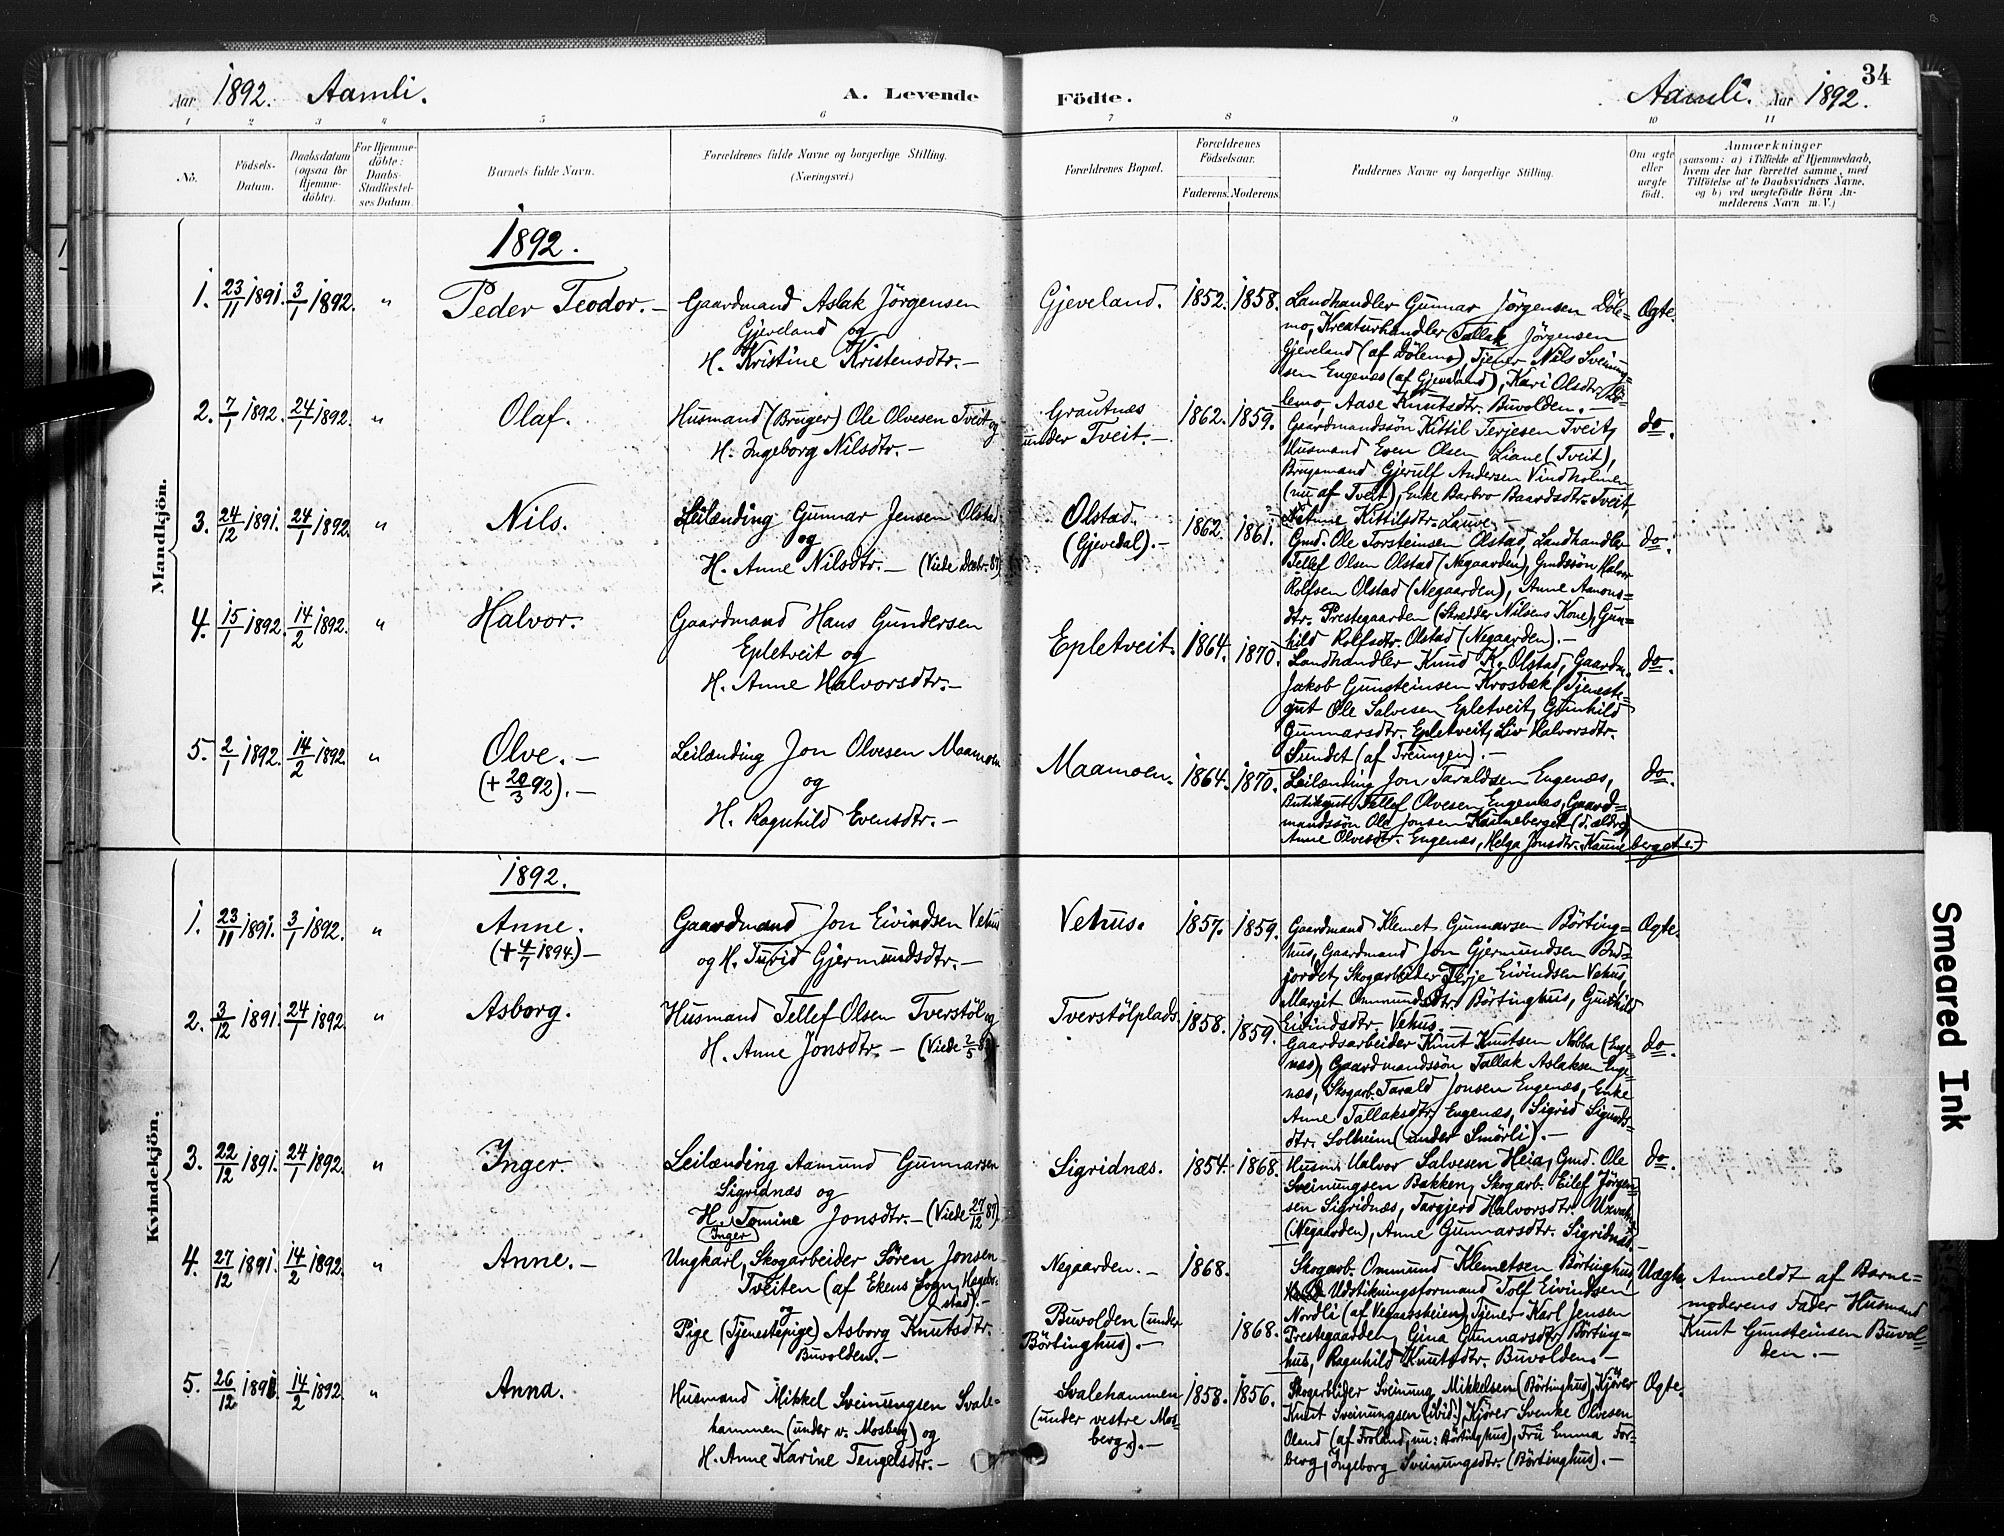 34
Aar 1892. Aamli. A. Levende Födte. Aamli. Aar 1892.
1 2 3 4 5 6 7 8 9 10 11
No. Födsels-Datum. Daabsdatum (ogsaa for Hjemmedöbte). For Hjemmedöbte: Daabs-Stadfæstelses Datum. Barnets fulde Navn. Forældrenes fulde Navne og borgerlige Stilling. (Næringsvei.) Forældrenes Bopæl. Forældrenes Födselsaar. Faderens. Moderens. Faddernes Navne og borgerlige Stilling. Om ægte eller uægte födt. Anmærkninger (saasom: a) i Tilfælde af Hjemmedaab, hvem der har forrettet samme, med Tilföielse af to Daabsvidners Navne, og b) ved uægtefödte Börn Anmelderens Navn m. V.)
Mandkjön.
1892.
1. 23/11 1891. 3/1 1892. " Peder Teodor. —
Gaardmand Aslak Jörgensen
Gjeveland og
H. Kristine Kristensdtr. —
Gjeveland. 1852. 1858.
Landhandler Gunnar Jörgensen Döle-
mo, Kreaturhandler Tallak Jörgensen
Gjeveland (af Dölemo), Tjener Nils Svein-
sen Engenæs (af Gjeveland), Kari Olsdtr. Dö-
lemo, Aase Knutsdtr. Buvolden. —
Ægte.
2. 7/1 1892. 24/1 1892. " Olaf.
Husmand (Bruger) Ole Olvesen Tveit og
H. Ingeborg Nilsdtr. —
Grautnæs
under Tveit. — 1862. 1859.
Gaardmandssön Kittil Terjesen Tveit,
Husmand Even Olsen Liane (Tveit),
Brugsmand Gjerulf Andersen Vindholmen
(nu af Tveit), Enke Barbro Baardsdtr. Tveit
Anne Kittilsdtr. Lauve. —
do.
3. 24/12 1891. 24/1 1892. " Nils.
Leilænding Gunnar Jensen Olstad
og
H. Anne Nilsdtr. — (Viede Decbr. 87)
Olstad.
(Gjevedal). — 1862. 1861.
Gmd. Ole Torsteinsen Olstad, Landhandler
Tellef Olsen Olstad (Negaarden), Gmdssön Halvor
Rolfsen Olstad (Negaarden), Anne Aanons-
dtr. Prestegaarden (Skrædder Nilsens Kone), Gun-
hild Rolfsdtr. Olstad (Negaarden). —
do.
4. 15/1 1892. 14/2 1892. " Halvor.
Gaardmand Hans Gundersen
Epletveit og
H. Anne Halvorsdtr. —
Epletveit. 1864. 1870.
Landhandler Knud K. Olstad, Gaardm.
Jakob Gunsteinsen Krosbæk, Tjeneste-
gut Ole Salvesen Epletveit, Gunhild
Gunnarsdtr. Epletveit, Liv Halvorsdtr.
Sundet (af Treungen). —
do.
5. 2/1 1892. 14/2 1892. " Olve. —
(+ 20/3 92). —
Leilænding Jon Olvesen Maamoen
og
H. Ragnhild Evensdtr. —
Maamoen. 1864. 1870.
Leilænding Jon Taraldsen Engenæs,
Butikgut Tellef Olvesen Engenæs, Gaard-
mandssön Ole Jonsen Kauneberget (d. ældre)
Anne Olvesdtr. Engenæs, Helga Jonsdtr. Kaune-
berget. —
do.
Kvindekjön.
1892.
1. 23/11 1891. 3/1 1892. " Anne.
(+ 4/7 1894) —
Gaardmand Jon Eivindsen Vehus
og H. Turid Gjermundsdtr. —
Vehus. 1857. 1859.
Gaardmand Klemet Gunnarsen Börting-
hus, Gaardmand Jon Gjermundsen
jordet, Skogarbeider Terje Eivindsen Vehus,
Margit Ommundsdtr. Börtinghus, Gunhild
Eivindsdtr. Vehus. —
Ægte.
2. 3/12 1891. 24/1 1892. " Asborg.
Husmand Tellef Olsen Tverstöl og
H. Anne Jonsdtr. — (Viede 2/5
Tverstölplads 1858. 1859.
Gaardsarbeider Knut Knutsen Nobba (Enge-
næs), Gaardmandssön Tallak Aslaksen Enge-
næs, Skogarb. Tarald Jonsen Engenæs, Enke
Anne Tallaksdtr. Engenæs, Sigrid Sigurds-
dtr. Solheim (under Smörli). —
do.
3. 22/12 1891. 24/1 1892. " Inger.
Leilænding Aamund Gunnarsen
Sigridnæs og
H. Tomine Jonsdtr. — (Viede 27/12 87)
(Inger)
Sigridnæs. 1854. 1868.
Husm. Halvor Salvesen Heia, Gmd. Ole
Sveinungsen Bakken, Skogarb. Eilef Jörgen-
sen Sigridnæs, Targjerd Halvorsdtr. Uxvatn
(Negaarden), Anne Gunnarsdtr. Sigridnæs. —
do.
4. 27/12 1891. 14/2 1892. " Anne. —
Ungkarl, Skogarbeider Sören Jonsen
Tveiten (af Ekens Sogn, Hægebo-
stad). —
og
Pige (Tjenestepige) Asborg Knutsdtr.
Buvolden. —
Negaarden. — 1868.
Buvolden (under
Börtinghus). — 1868.
Skogarb. Ommund Klemetsen Börtinghus,
Udstikningsformand Tolf Eivindsen
Nordli (af Vegaarsheien), Tjener Karl Jensen
Prestegaarden, Gina Gunnarsdtr. Börting-
hus, Ragnhild Knutsdtr. Buvolden. —
Uægte
Anmeldt af Barne-
moderens Fader Husmand
Knut Gunsteinsen Buvol-
den. —
5. 26/12 1891. 14/2 1892. " Anna.
Husmand Mikkel Sveinungsen Svale-
hammen (under v. Mosberg) og
H. Anne Karine Tengelsdtr. —
Svalehammen
(under vestre Mos-
berg). — 1858. 1856.
Skogarbeider Sveinung Mikkelsen (Börtinghus), Kjörer
Knut Sveinungsen (ibid.), Kjörer Svenke Olvesen
Oland (af Froland, nu: Börtinghus), Fru Emma Tor-
berg, Ingeborg Sveinungsdtr. (Börtinghus). —
Ægte.
Smeared Ink